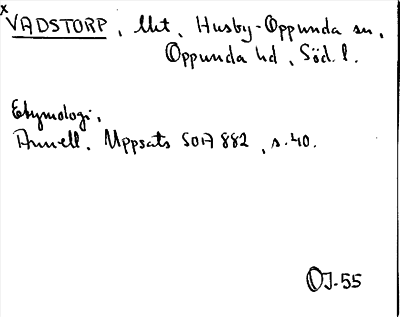 x
VADSTORP, Utt, Husby-Oppunda sn,
Oppunda hd, Söd. l.
Etymologi,
Annell. Uppsats SOA 882, s. 40.
OJ-55